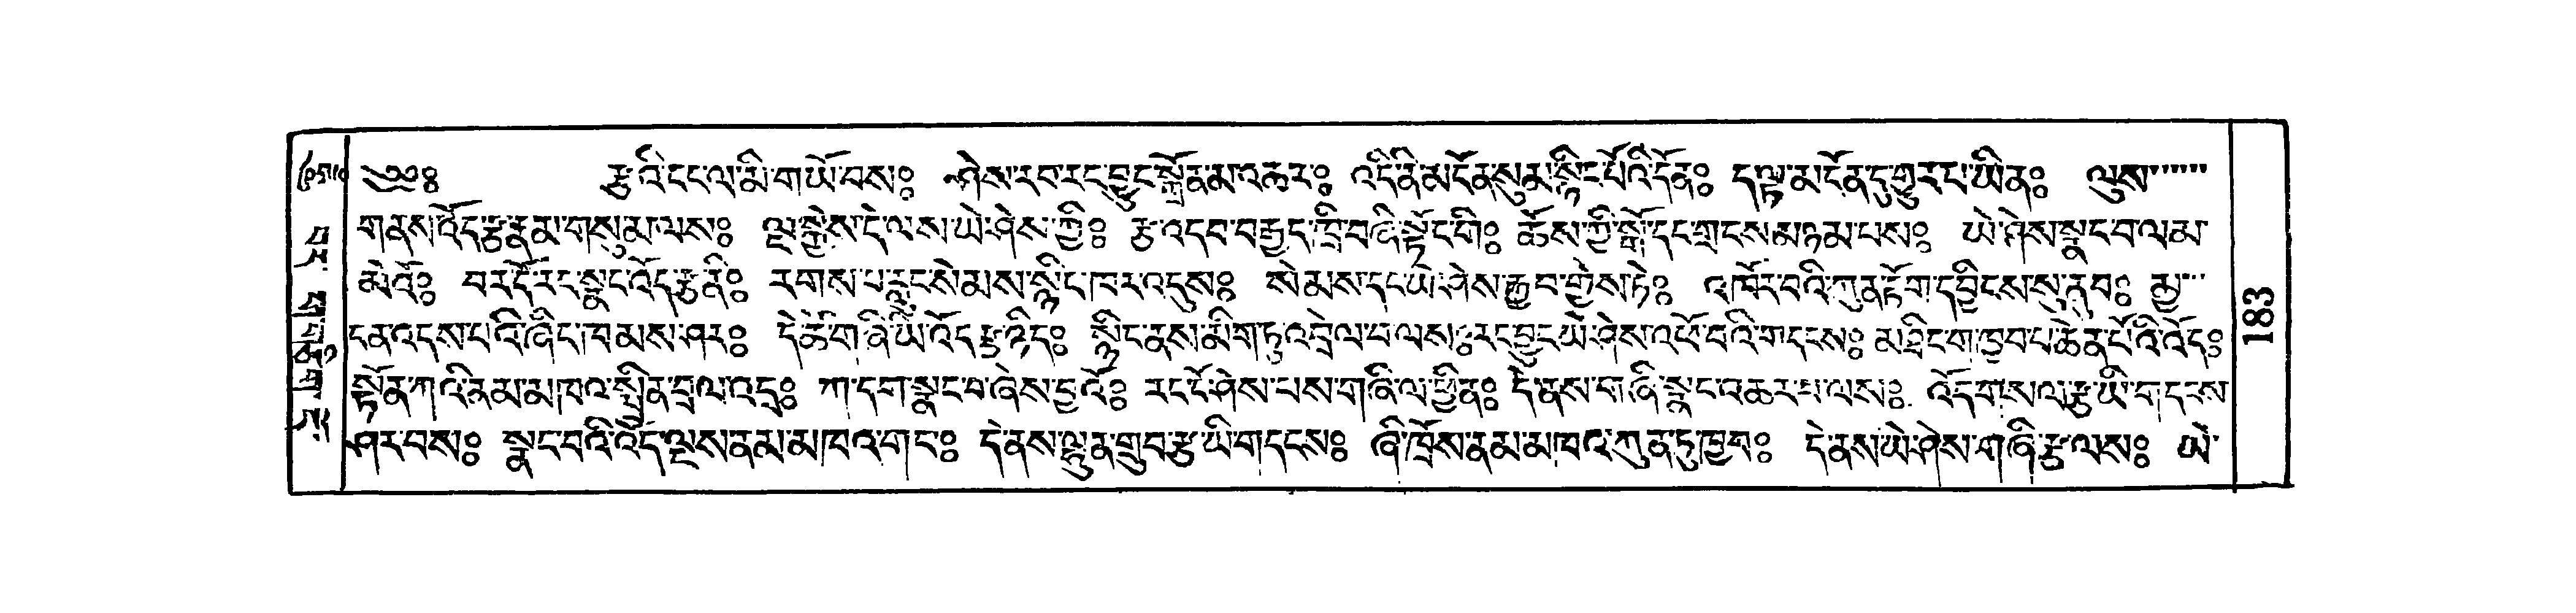 ༄༅༔ རྩའི་ངང་ལ་མི་གཡོ་བས༔ ཤེས་རབ་རང་བྱུང་སྒྲོན་མ་འཆར༔ འདི་ནི་མ་དོན་སུམ་སྙིང་པོའི་དོན༔ ད་ལྟ་མངོན་དུ་གྱུར་པ་ཡིན༔ ལུས་
གནས་འོད་རྩ་རྣམ་གསུམ་ལས༔ ལྔ་སྒྱེས་དེ་ལས་ཡེ་ཤེས་ཀྱི༔ རྩ་འདབ་བརྒྱད་ཁྲི་བཞི་སྟོང་གི༔ ཆོས་ཀྱི་སྒོ་དང་གྲངས་མཉམ་པས༔ ཡེ་ཤེས་སྣང་བ་ལམ་
མེའོ༔ བར་དོར་རང་སྣང་འོད་རྩ་ནི༔ རགས་པ་རླུང་སེམས་སྙིང་ཁར་འདུས༔ སེམས་དང་ཡེ་ཤེས་རྒྱབ་གྱེས་ཏེ༔ འཁོར་བའི་ཀུན་རྟོག་དབྱིངས་སུ་ནུབ༔ མྱ་
ངན་འདས་པའི་ཞིང་ཁམས་ཤར༔ དེ་ཚེ་གཞི་ཡི་འོད་རྩ་ཉིད༔ སྙིང་ནས་མིག་ཏུ་འབྲེལ་པ་ལས༔ རང་བྱུང་ཡེ་ཤེས་འཕོ་བའི་གདངས༔ མཐིང་ག་ཁྱབ་པ་ཆེན་པོའི་འོད༔
སྟོན་ཀའི་ནམ་མཁའ་སྤྲིན་བྲལ་འདྲ༔ ཀ་དག་སྣང་བ་ཞེས་བྱའོ༔ རང་ངོ་ཤེས་པས་གཞི་ལ་ཕྱིན༔ དེ་ནས་གཞི་སྣང་འཆར་བ་ལས༔ འོད་གསལ་རྩ་ཡི་གདངས་
ཤར་བས༔ སྣང་བའི་འོད་ལྔས་ནམ་མཁའ་གང༔ དེ་ནས་ལྷུན་གྲུབ་རྩ་ཡི་གདངས༔ ཞི་ཁྲོས་ནམ་མཁའ་ཀུན་ཏུ་ཁྱབ༔ དེ་ནས་ཡེ་ཤེས་གཞི་རྩ་ལས༔ ཡེ་
183